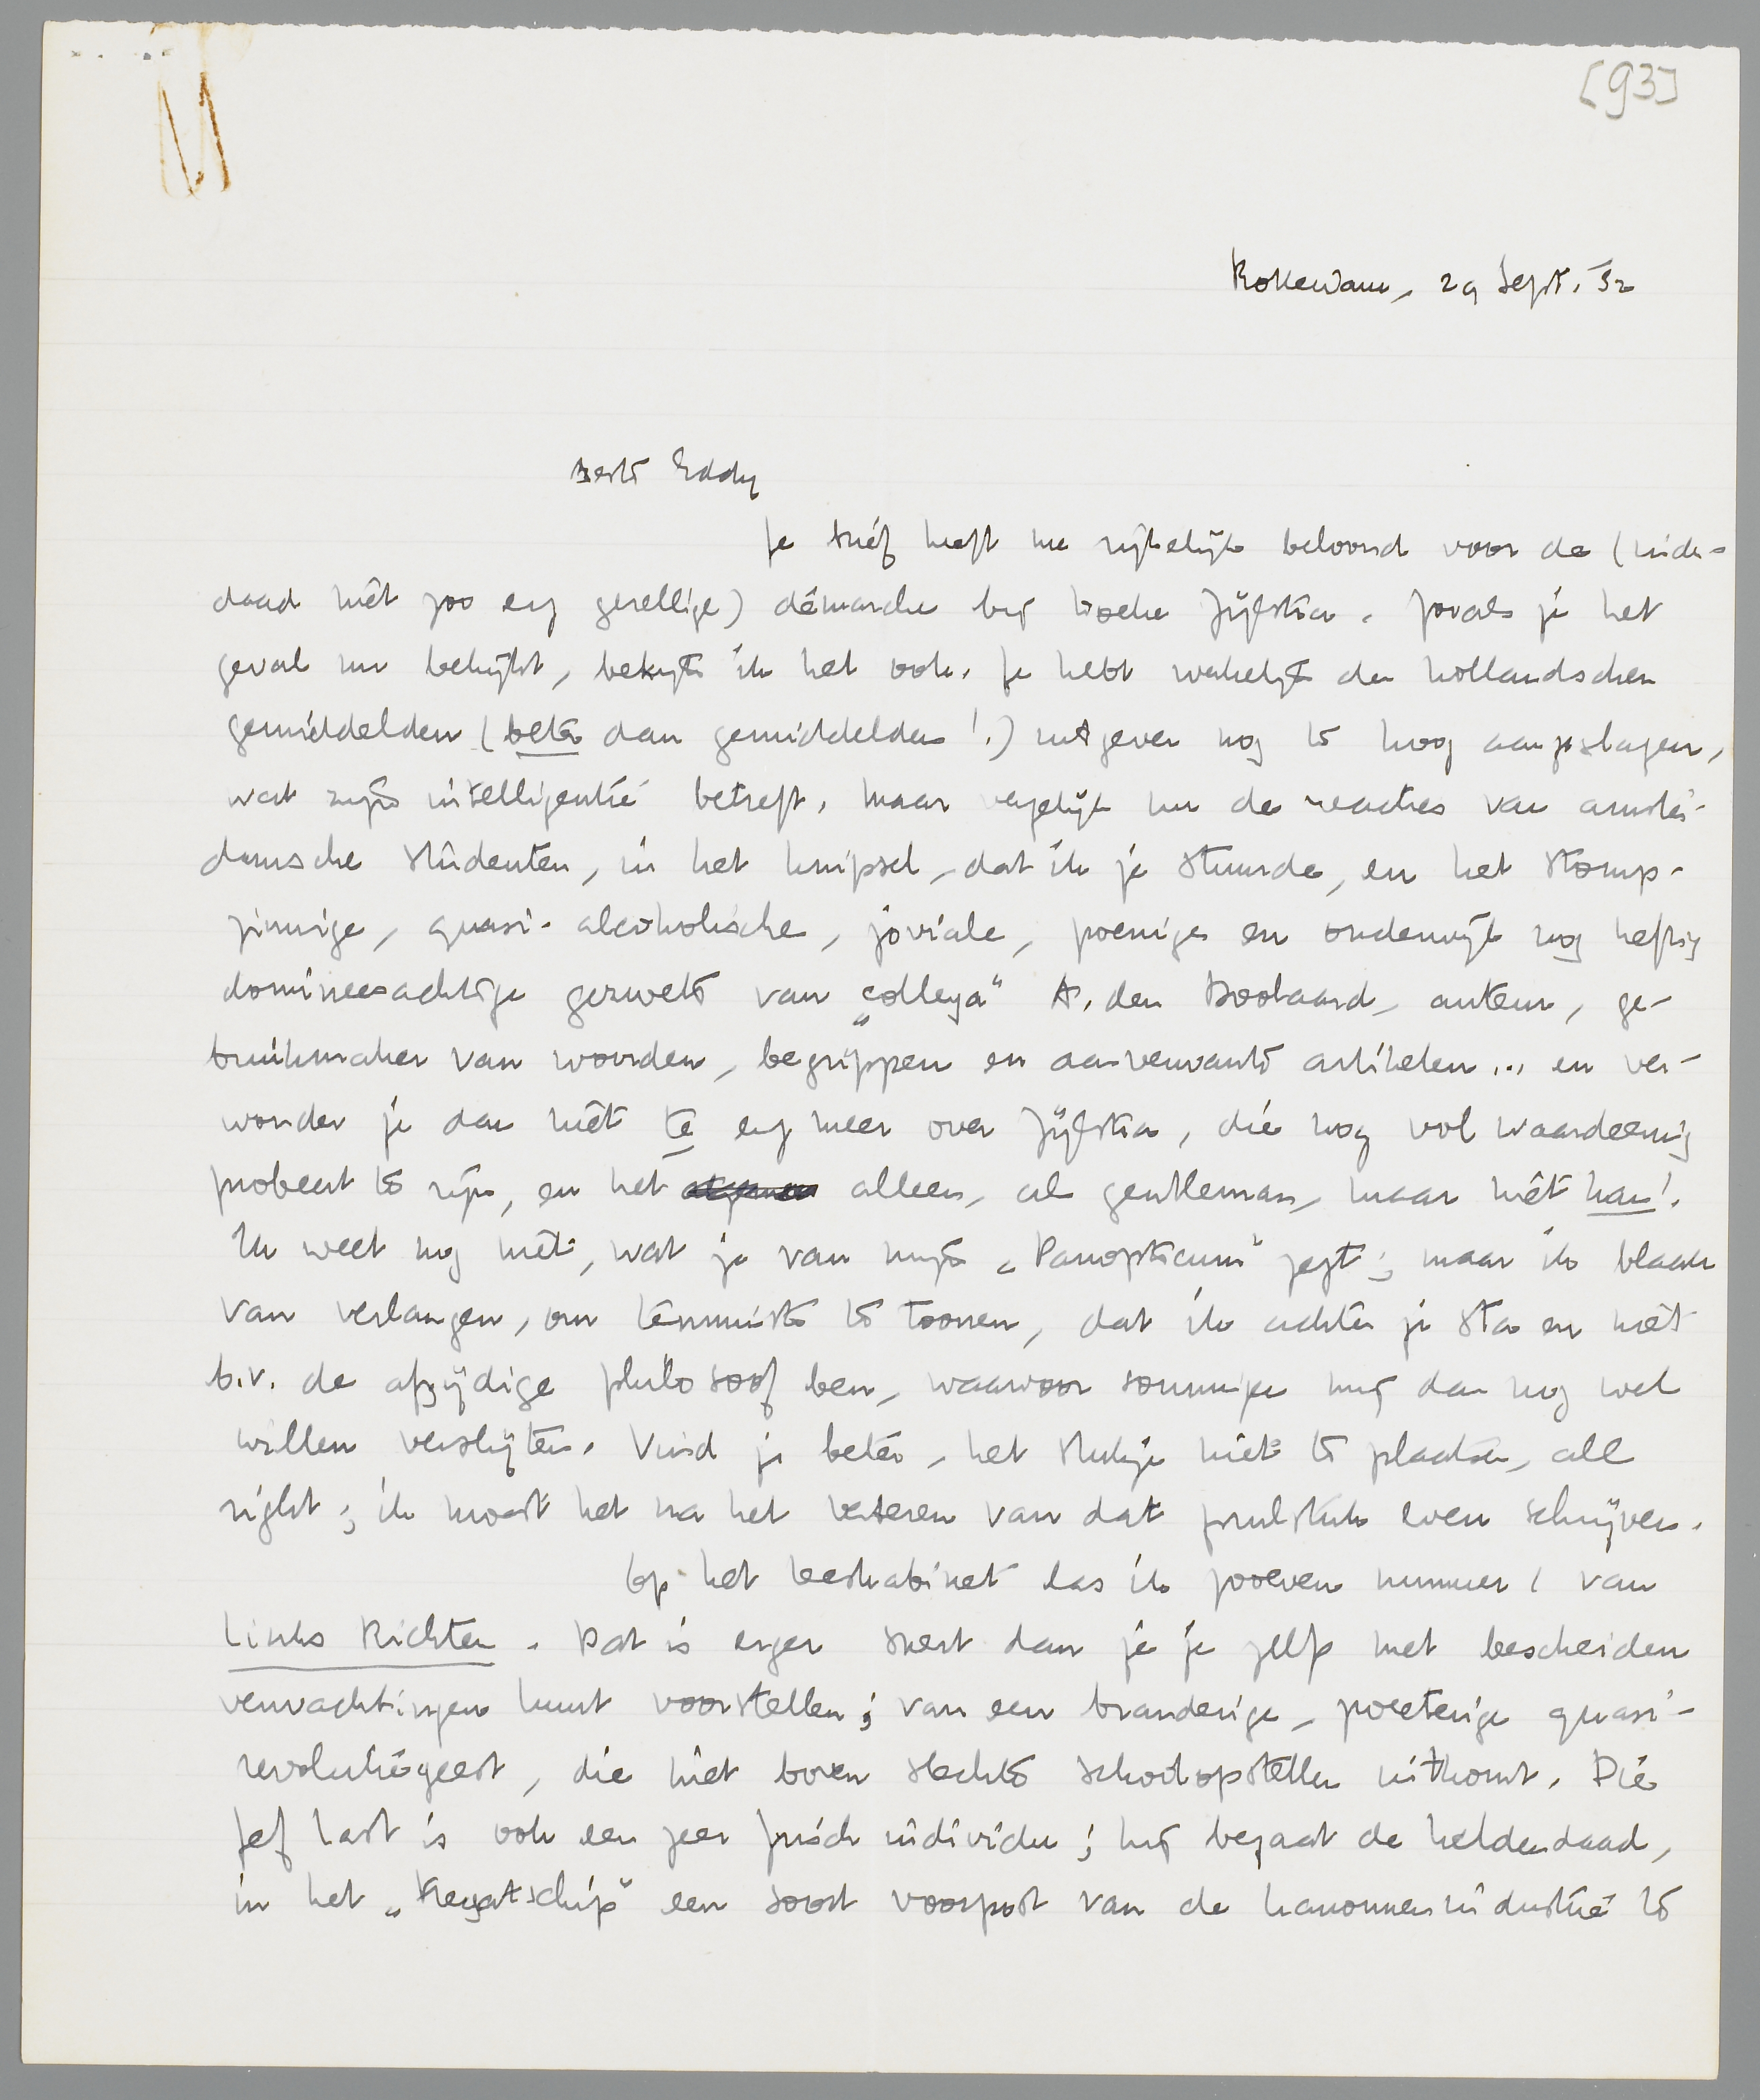 [93]
Rotterdam, 29 Sept. '32
Beste Eddy
Je brief heeft me rijkelijk beloond voor de (inder-
daad niet zoo erg gezellige) démarche bij Doeke Zijlstra. Zooals je het
geval nu bekijkt, bekijk ik het ook. Je hebt werkelijk den hollandschen
gemiddelden (beter dan gemiddelden!) uitgever nog te hoog aangeslagen,
wat zijn intelligentie betreft. Maar vergelijk nu de reacties van amster-
damsche studenten, in het knipsel, dat ik je stuurde, en het stomp-
zinnige, quasi-alcoholische, joviale, poenige en onderwijl nog heftig
domineesachtige gezwets van „collega" A. den Doolaard, auteur, ge-
bruikmaker van woorden, begrippen en aanverwante artikelen... en ver-
wonder je dan niet te erg meer over Zijlstra, die nog vol waardeering
probeert te zijn, en het alleen, als gentleman, maar niet kan!
Ik weet nog niet, wat je van mijn „Panopticum" zegt; maar ik blaak
van verlangen, om tenminste te toonen, dat ik achter je sta en niet
b.v. de afzijdige philosoof ben, waarvoor sommigen mij dan nog wel
willen verslijten. Vind je beter, het stukje niet te plaatsen, all
right; ik moest het na het verteren van dat prulstuk even schrijven.
Op het leeskabinet las ik zooeven nummer 1 van
Links Richten. Dat is erger snert dan je je zelf met bescheiden
verwachtingen kunt voorstellen; van een branderige, poeterige quasi-
revolutiegeest, die niet boven slechte schoolopstellen uitkomt. Die
Jef Last is ook een zeer frisch individu; hij begaat de heldendaad,
in het „Fregatschip" een soort voorpost van de kanonnenindustrie te